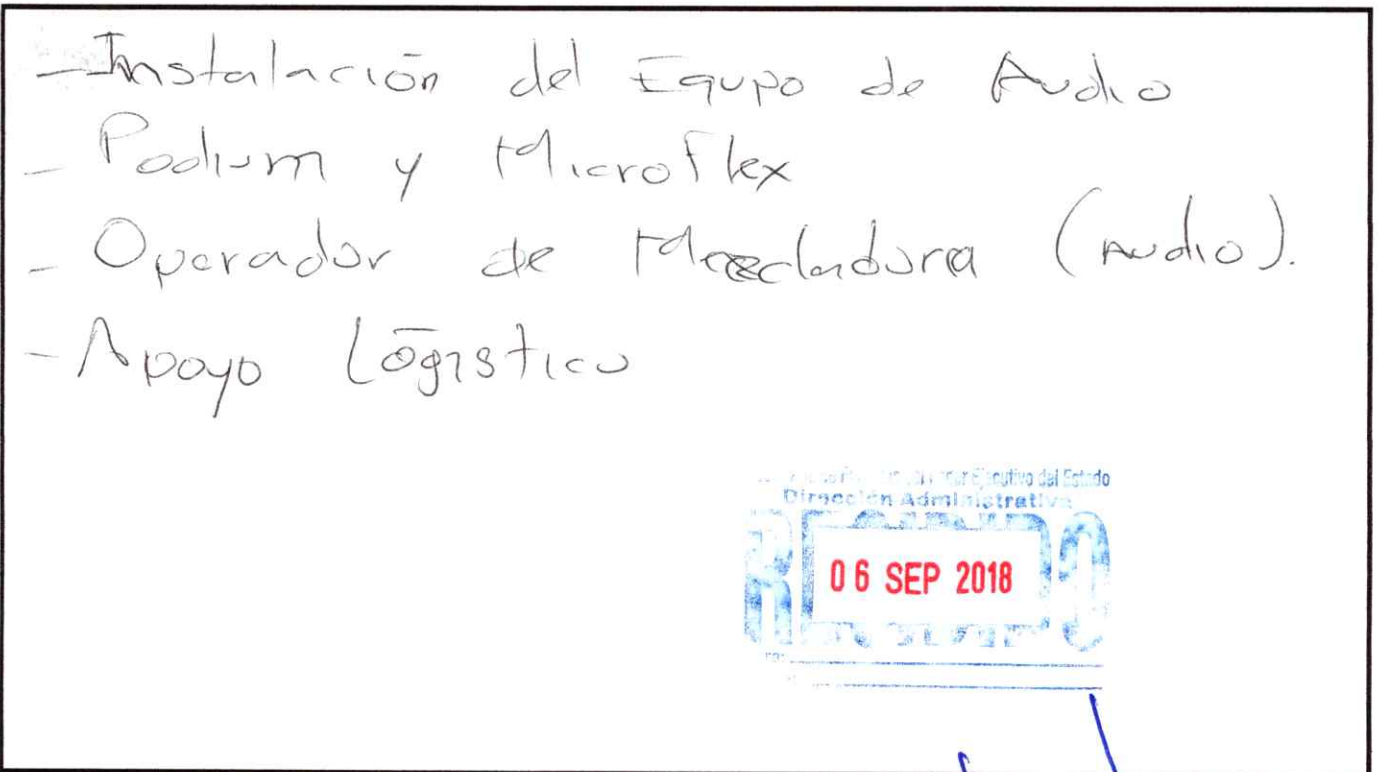 - Instalación del Equpo de Audio
- Podium y Microflex
- Operador de Mezcladora (Audio).
- Apoyo Logístico
Ejecutivo del Estado
Dirección Administrativa
RECIBIDO
06 SEP 2018